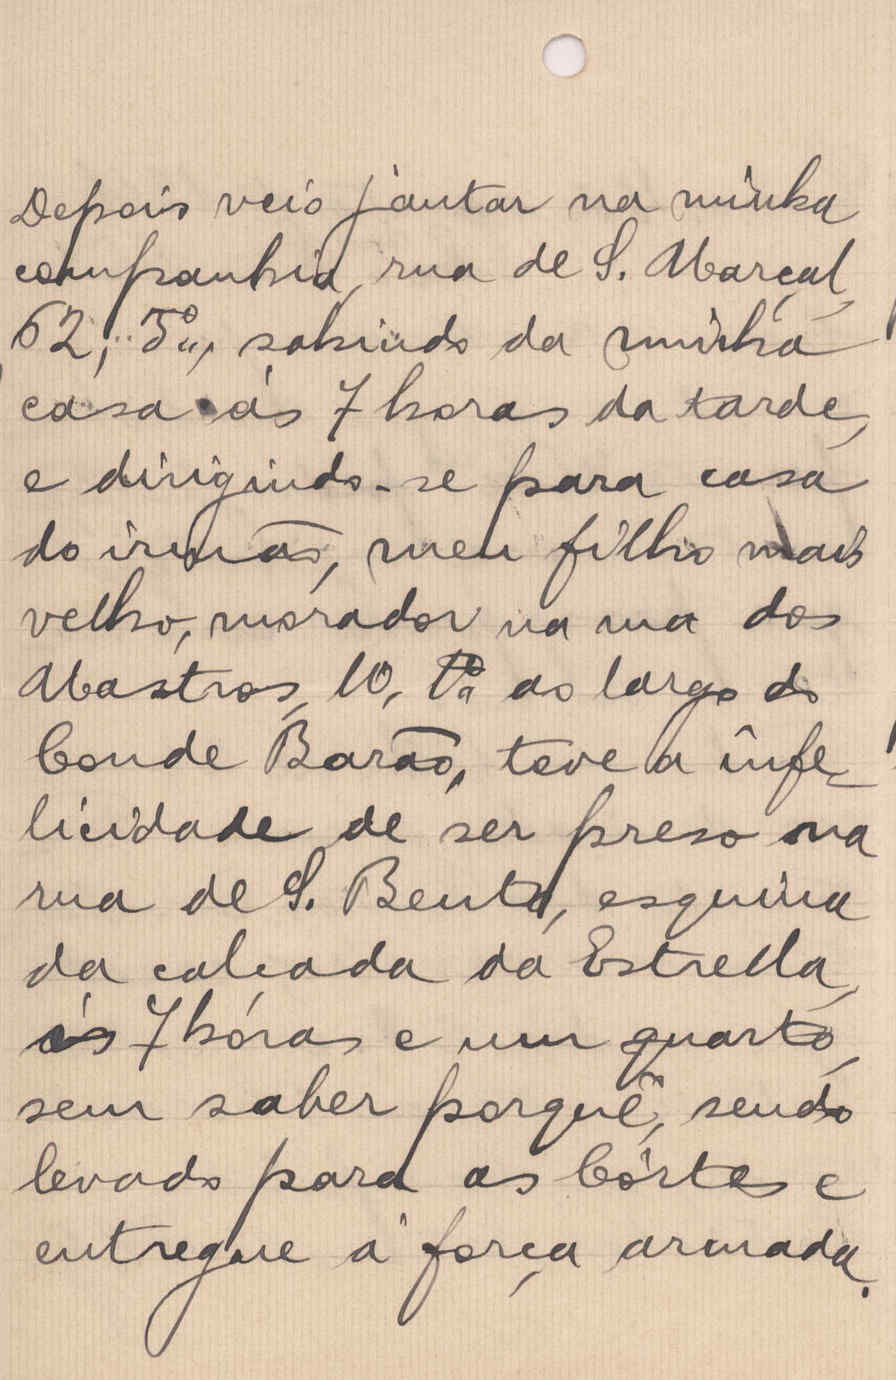 Depois veio jantar na minha
companhia, rua de S. Marçal,
62, 3º, sahindo da minha
casa ás 7 horas da tarde,
e dirigindo-se para casa
do irmão, meu filho mais
velho, morador na rua dos
Mastros, 10, 1º ao largo do
Conde Barão, teve a infe-
licidade de ser preso na
rua de S. Bento, esquina
da calçada da Estrella,
ás 7 hóras e um quarto,
sem saber porquê, sendo
levado para as Côrtes e
entregue á força armada.